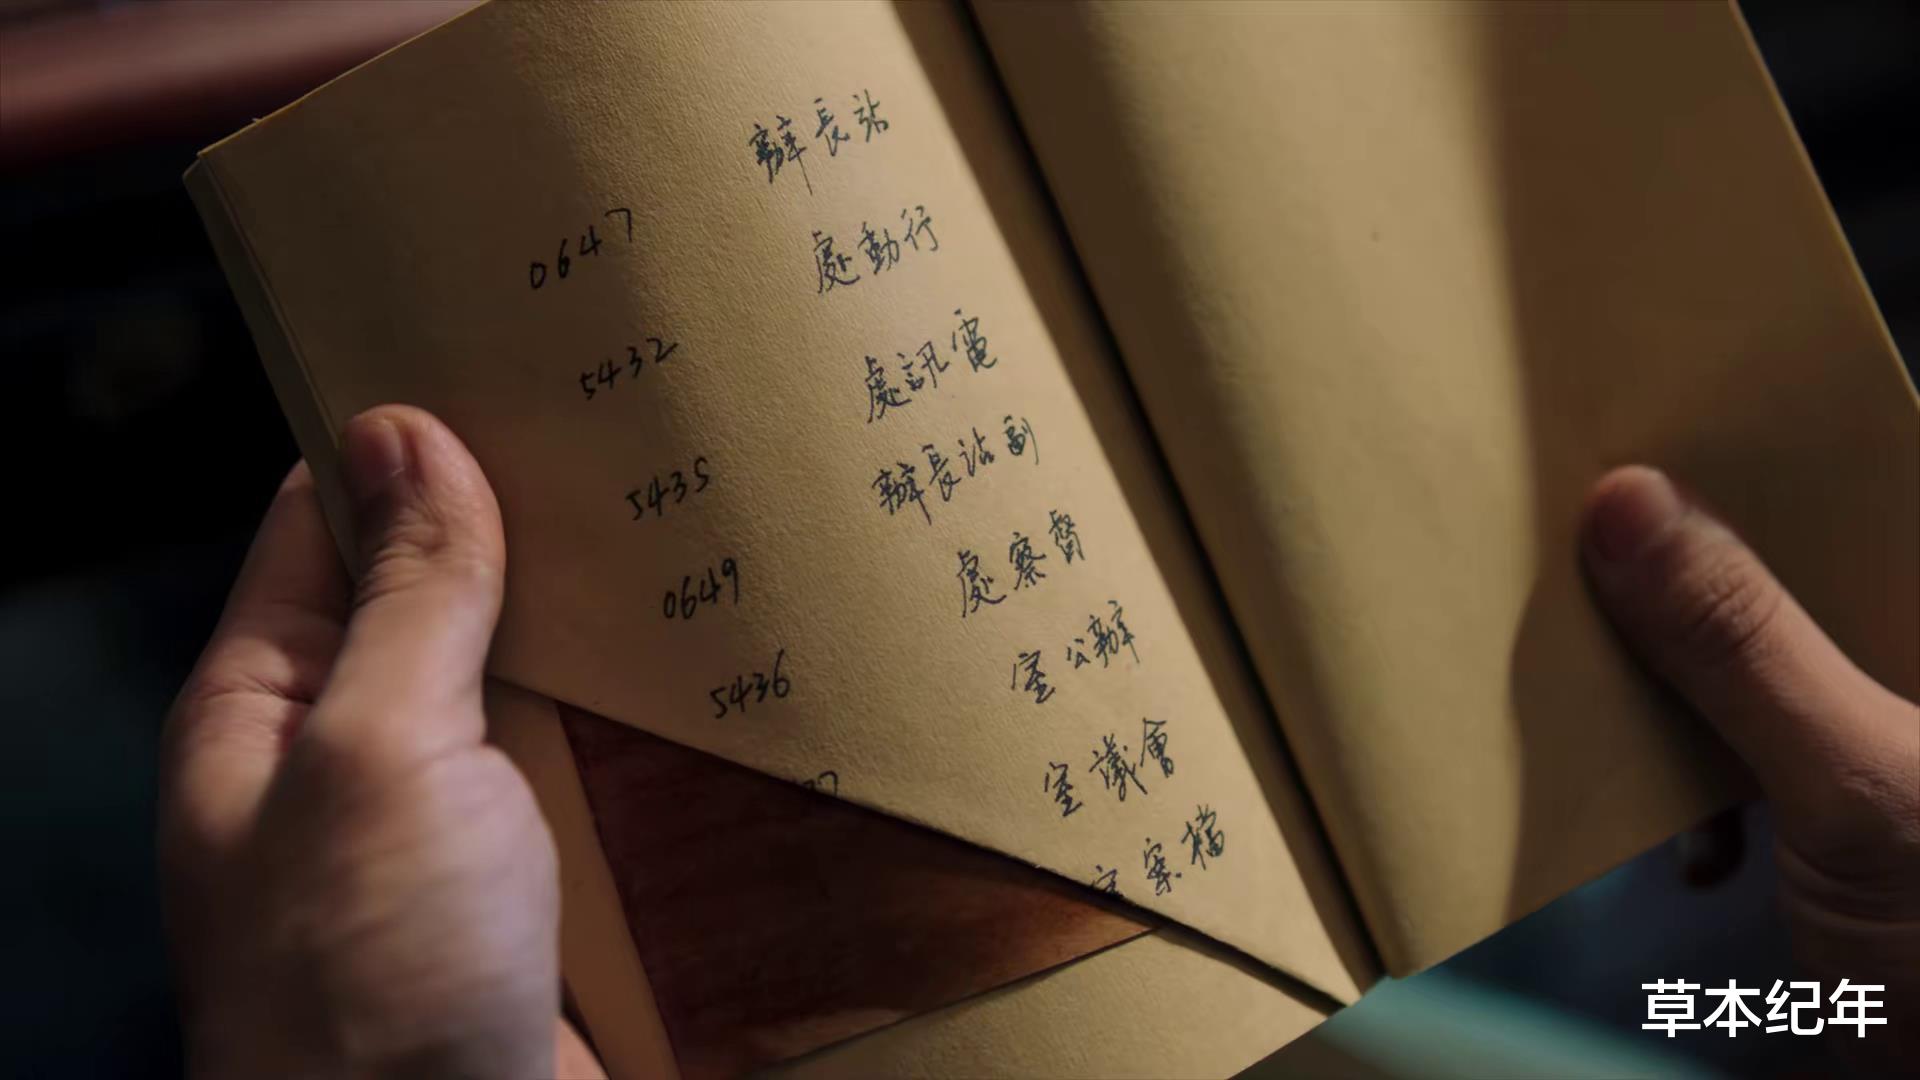 辦長站
0647
處動行
5432
處訊電
5435
辦長站副
0649
處察督
5436
室公辦
室議會
室案檔
草本纪年